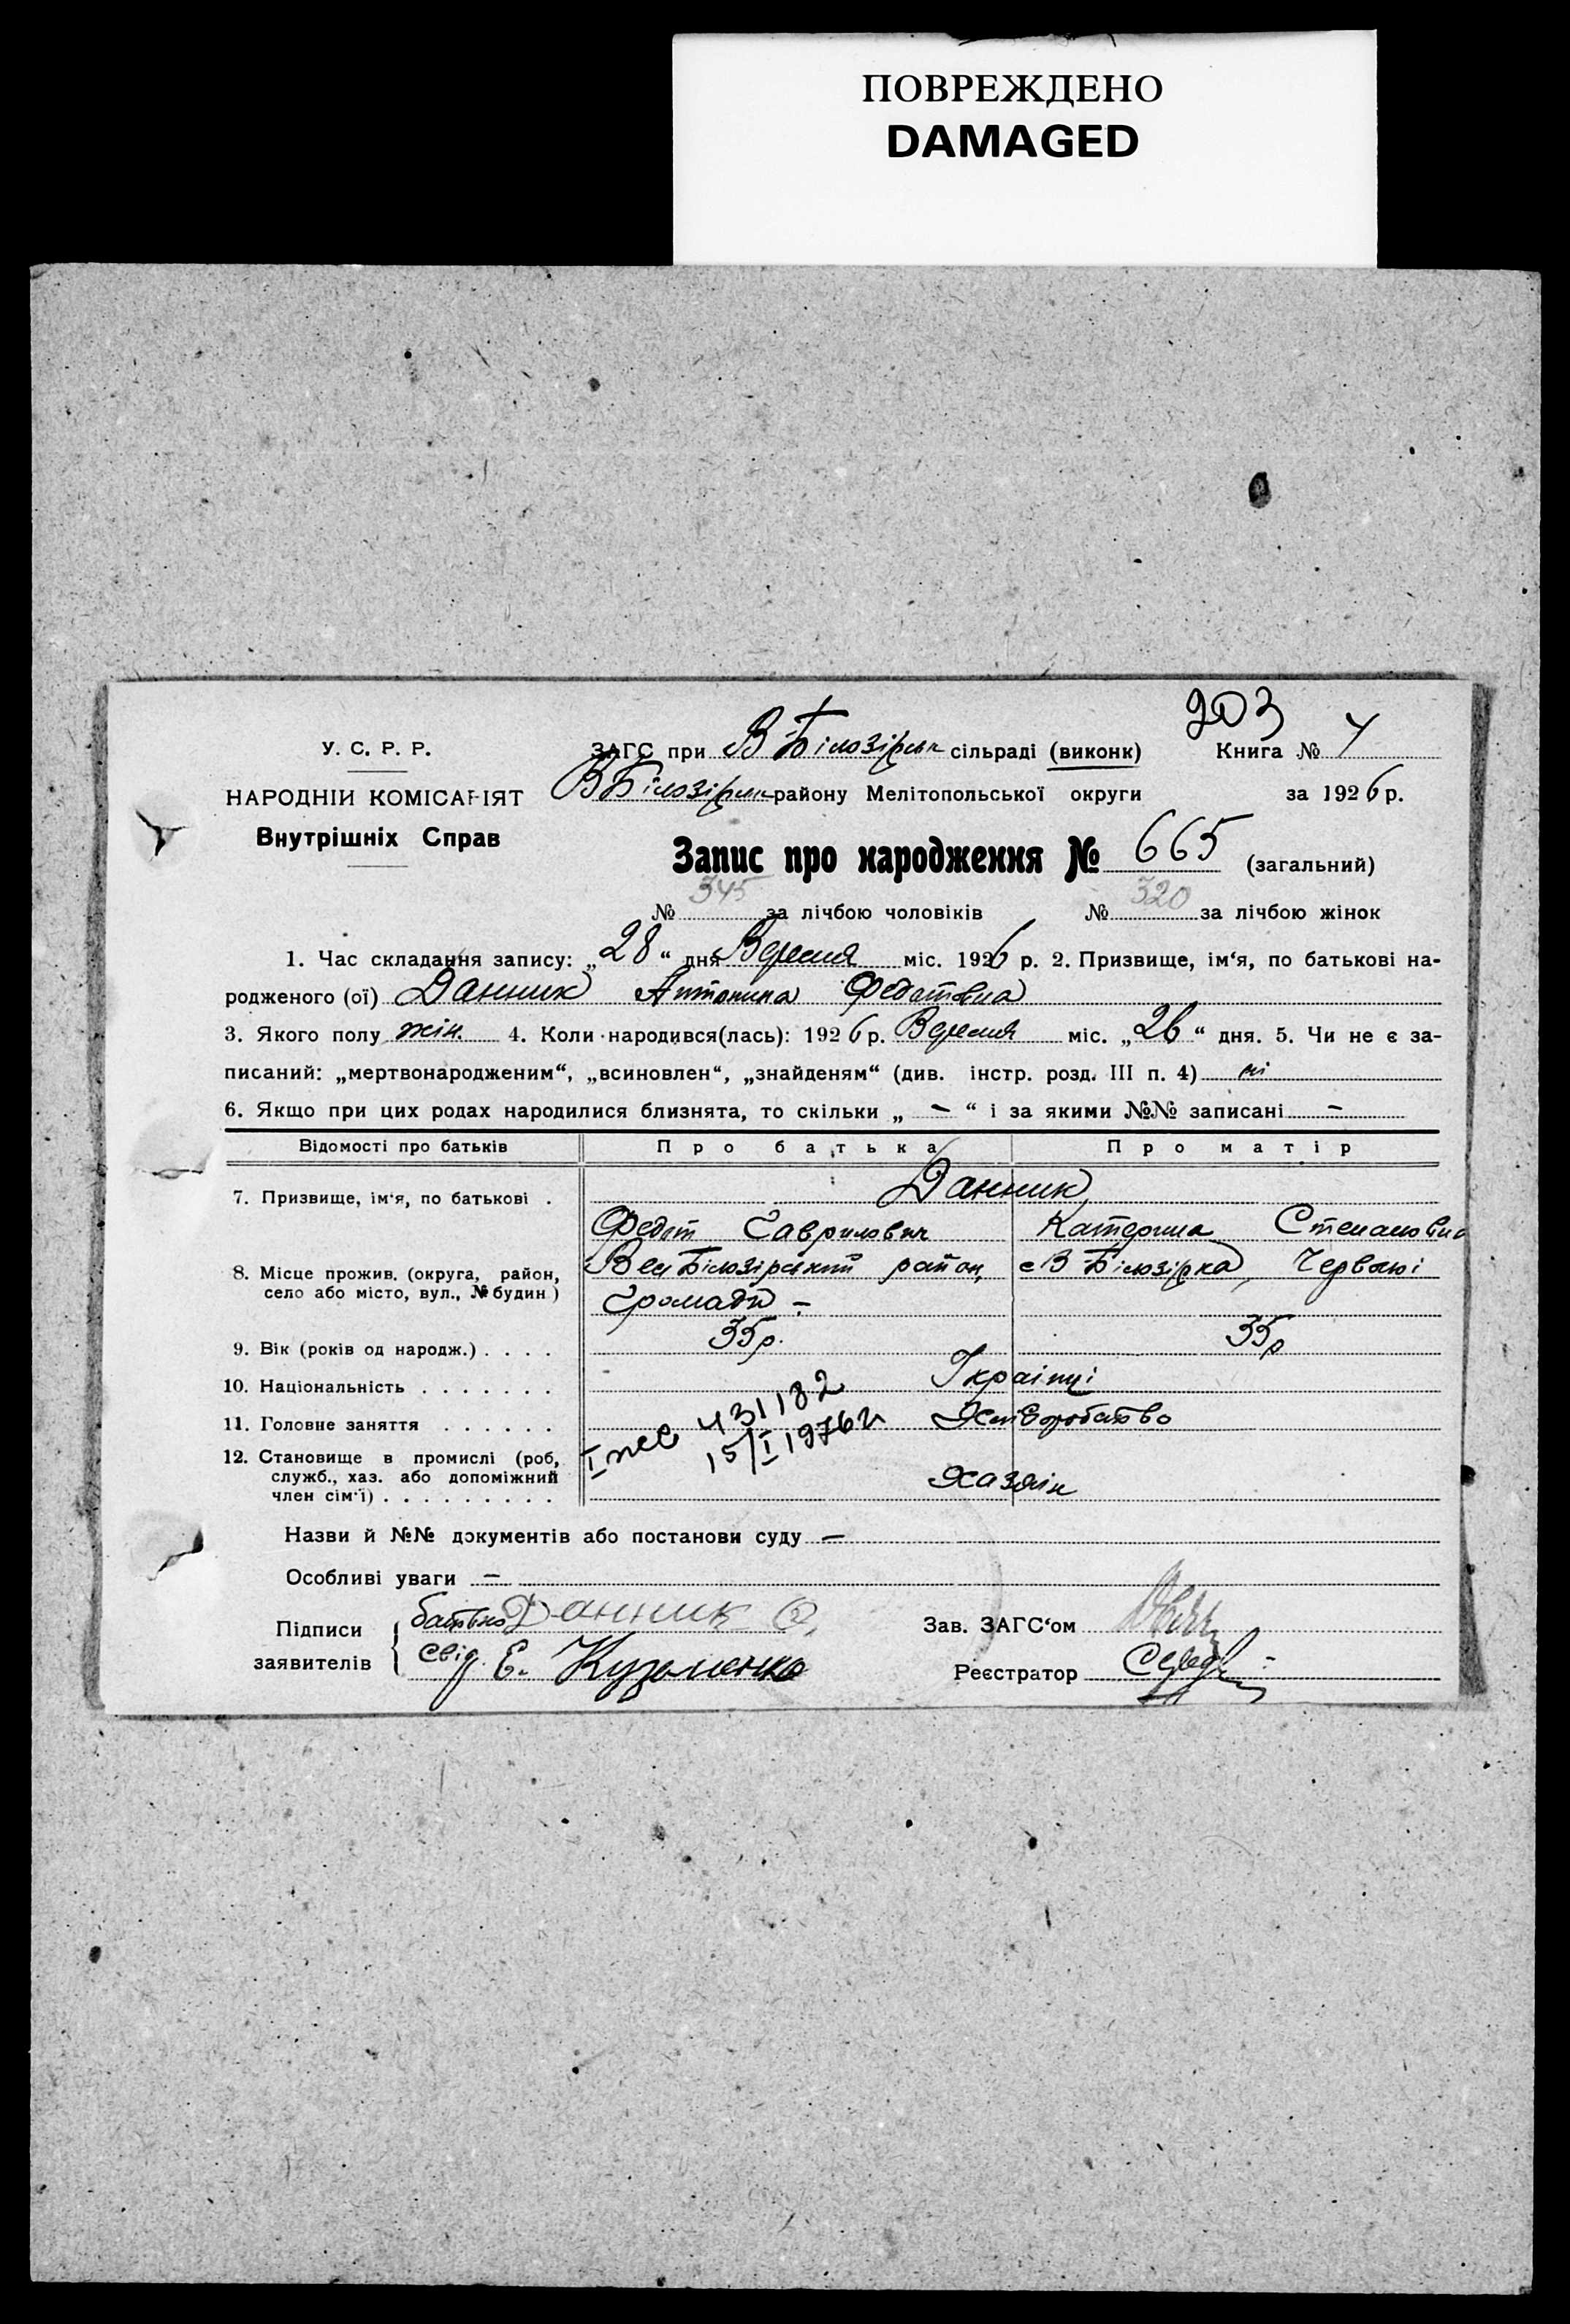 ПОВРЕЖДЕНО
DAMAGED
203
У. С. Р. Р.
ЗАГС при В Білозірськ сільраді (виконк) Книга № 4
НАРОДНІЙ КОМІСАРІЯТ
В Білозірськ району Мелітопольської округи за 1926 р.
Внутрішніх Справ
Запис про народження № 665 (загальний)
№ 345 за лічбою чоловіків № 320 за лічбою жінок
1. Час складання запису: „28“ дня Вересня міс. 1926 р. 2. Призвище, ім‘я, по батькові на-
родженого (ої) Данник Антонина Федотовна
3. Якого полу жін. 4. Коли народився(лась): 1926 р. Вересня міс. „26“ дня. 5. Чи не є за-
писаний: „мертвонародженим“, „всиновлен“, „знайденям“ (див. інстр. розд. III п. 4) ні
6. Якщо при цих родах народилися близнята, то скільки „ — “ і за якими №№ записані —
Відомості про батьків Про батька Про матір
7. Призвище, ім‘я, по батькові . Данник
Федот Гаврилович Катерина Степановна
8. Місце прожив. (округа, район, село або місто, вул., № будин) Вел Білозірський район, с В Білозірка, Червоної
Громади —
9. Вік (років од народж.) . . . . 35 р. 35 р
10. Національність . . . . . . . Українці
11. Головне заняття . . . . . . Хліборобство
431182
15/I 1976 г
12. Становище в промислі (роб,
служб., хаз. або допоміжний
член сім‘ї) . . . . . . . . . Хазяїн
Назви й №№ документів або постанови суду —
Особливі уваги —
Підписи батько Данник Ф. Зав. ЗАГС‘ом
заявителів свід. Е. Кузьменко Реєстратор